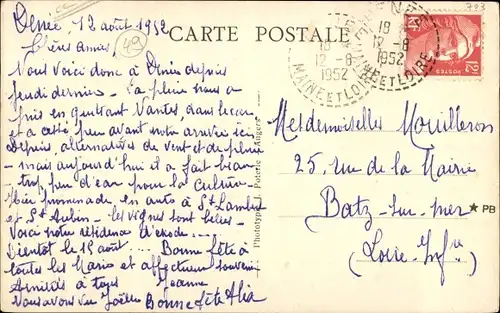 Denée, 12 août 1952
49
CARTE POSTALE
Chères amies,
Nous voici donc à Denée depuis
jeudi dernier - la pluie nous a
pris en quittant Nantes, dans le car
et a cessé peu avant notre arrivée ici
Depuis, alternatives de vent et de pluie
- mais aujourd'hui il a fait bien
trop peu d'eau pour la culture
Hier promenade en auto à St Lambert
et St Aubin - les vignes sont belles -
Voici notre résidence d'exode -
Bientôt le 15 août ... Bonne fête à
toutes les Maries et affectueux souvenir
Amitiés à tous Jeanne
Nous avons vu Joëlle Bonne fête Alia
Phototypie Angers
18
12-8
1952
MAINE ET LOIRE
18
12-8
1952
MAINE ET LOIRE
RF
POSTES
12F
783
Mesdemoiselles Mouilleron
25, rue de la Mairie
Batz-sur-mer
(Loire-Infre)
★ PB